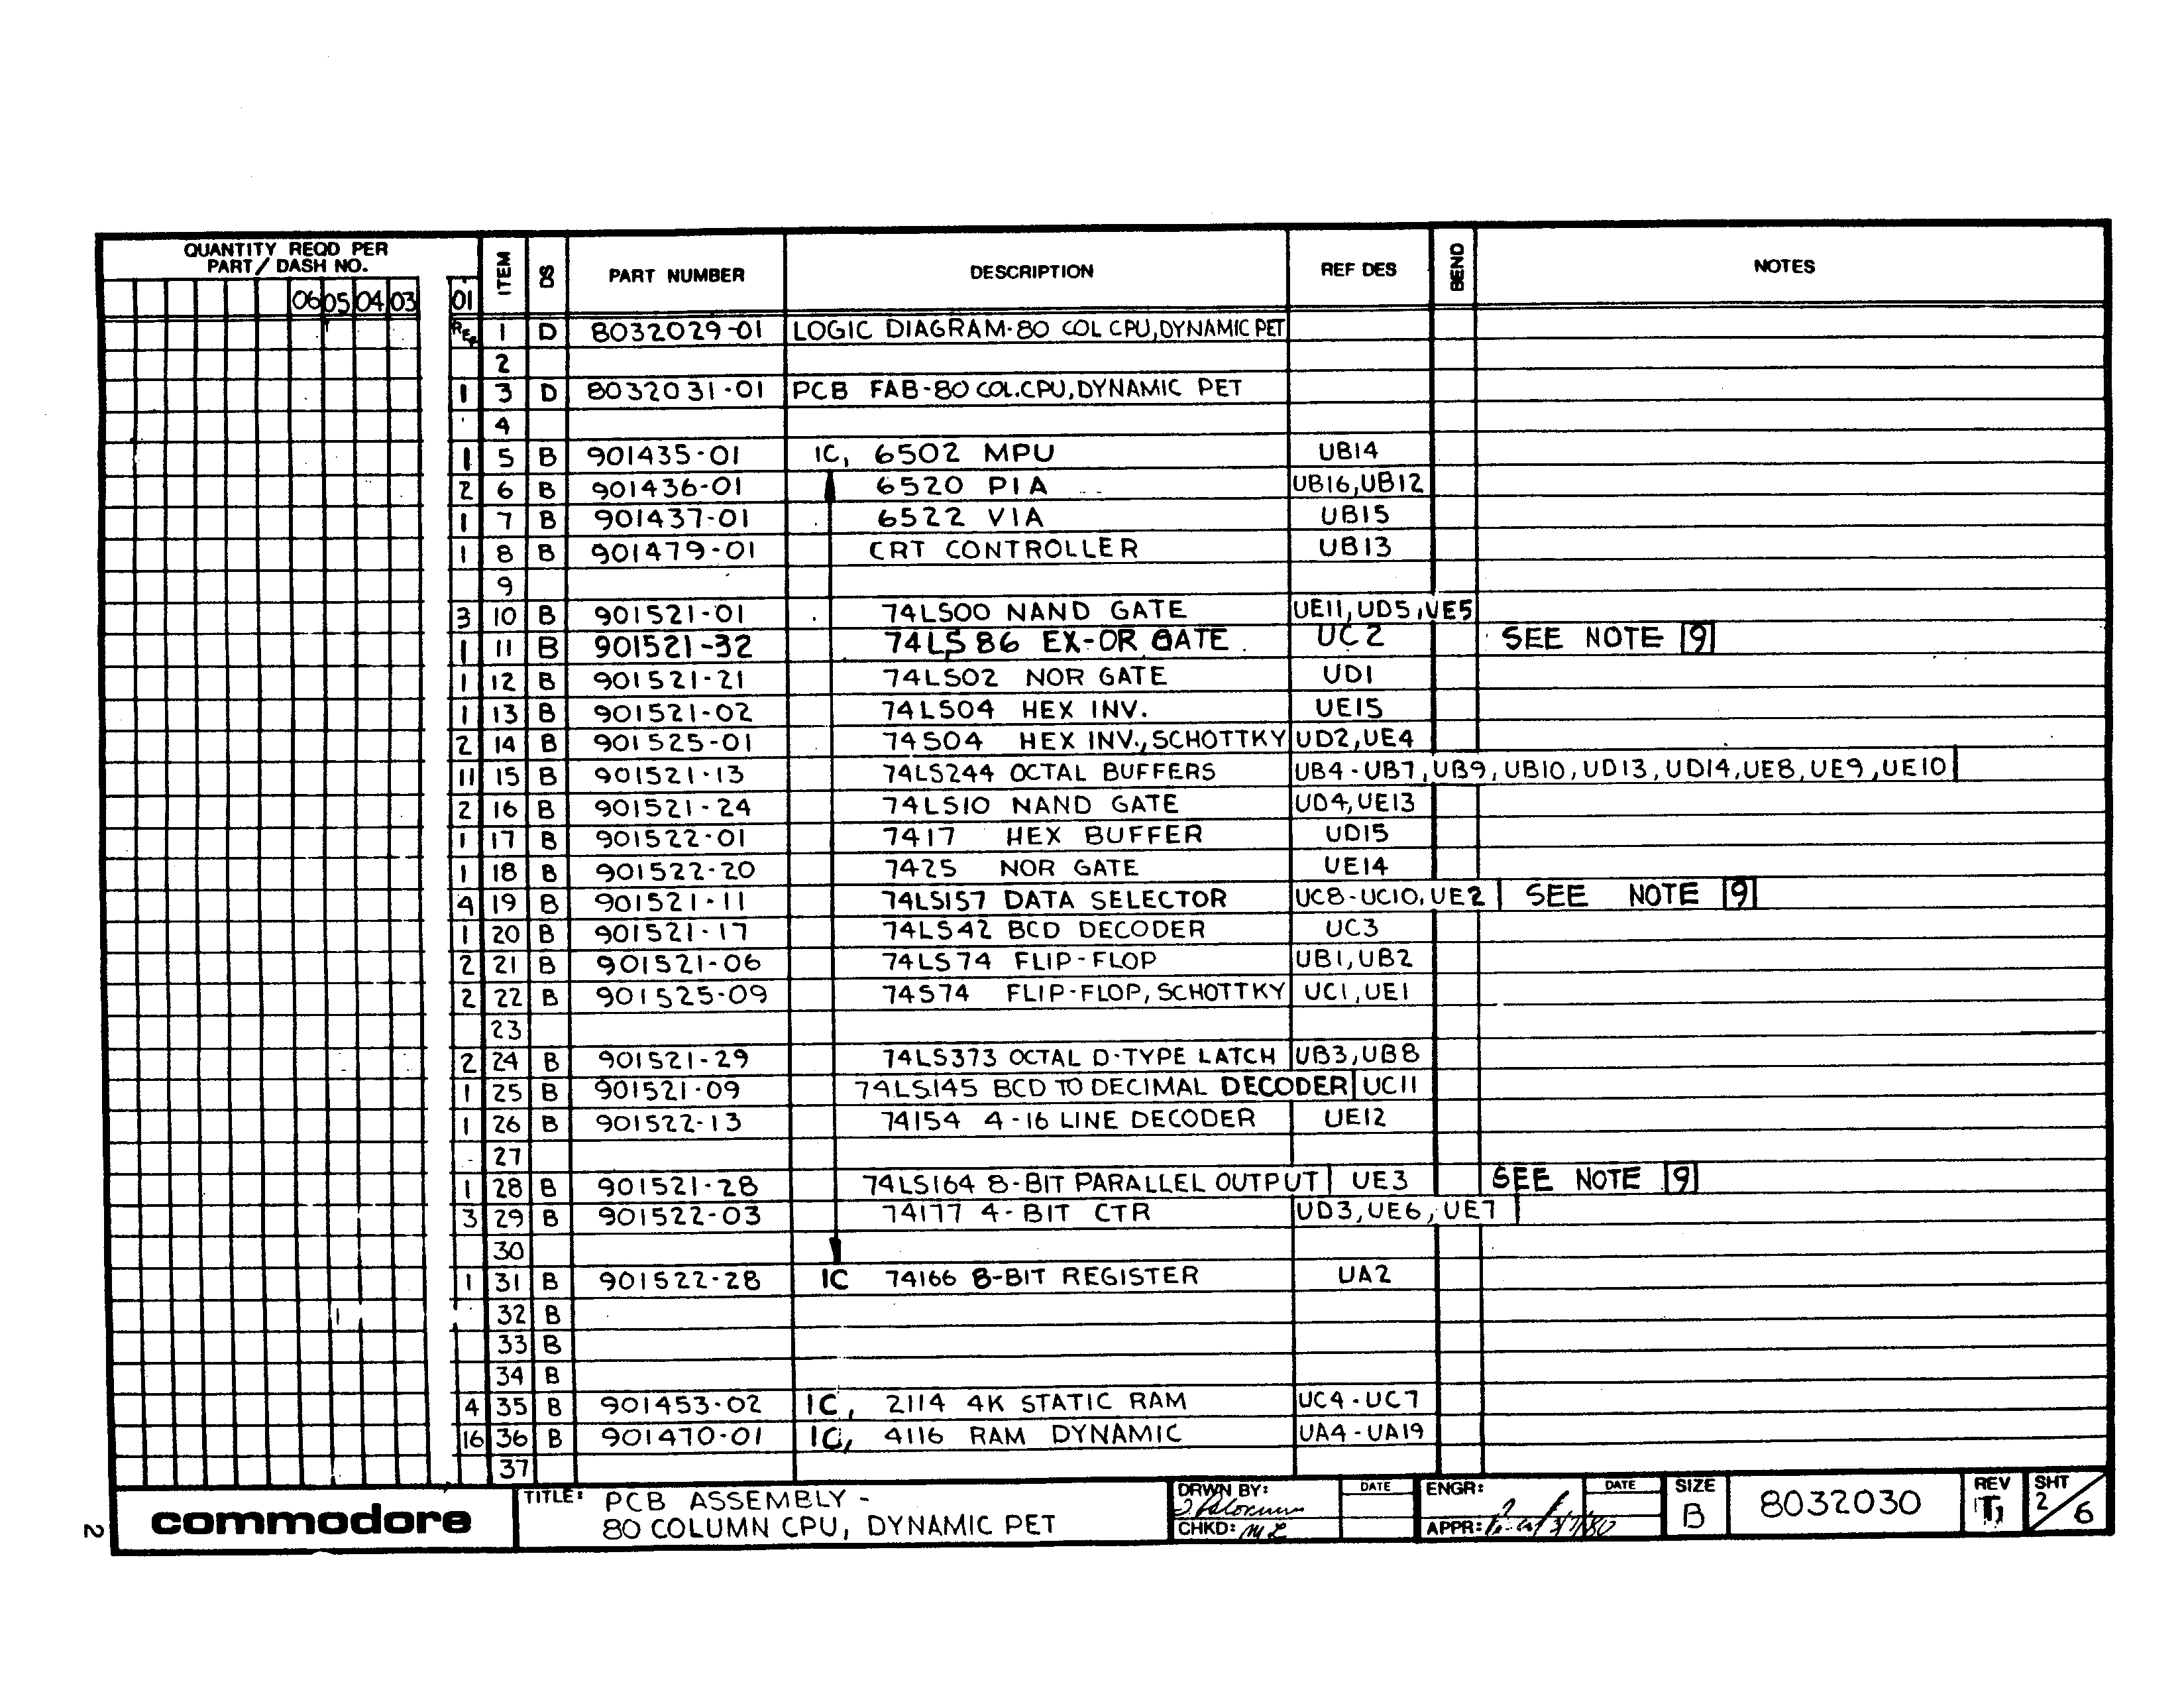 QUANTITY REQD PER
PART/ DASH NO.
06 05 04 03 01 ITEM DS PART NUMBER DESCRIPTION REF DES BEND NOTES
REF 1 D 8032029-01 LOGIC DIAGRAM-80 COL CPU, DYNAMIC PET
2
1 3 D 8032031-01 PCB FAB-80 COL.CPU, DYNAMIC PET
4
1 5 B 901435-01 IC, 6502 MPU UB14
2 6 B 901436-01 6520 PIA UB16, UB12
1 7 B 901437-01 6522 VIA UB15
1 8 B 901479-01 CRT CONTROLLER UB13
9
3 10 B 901521-01 74LS00 NAND GATE UE11, UD5, UE5
1 11 B 901521-32 74LS86 EX-OR GATE UC2 SEE NOTE 9
1 12 B 901521-21 74LS02 NOR GATE UD1
1 13 B 901521-02 74LS04 HEX INV. UE15
2 14 B 901525-01 74S04 HEX INV., SCHOTTKY UD2, UE4
11 15 B 901521-13 74LS244 OCTAL BUFFERS UB4-UB7, UB9, UB10, UD13, UD14, UE8, UE9, UE10
2 16 B 901521-24 74LS10 NAND GATE UD4, UE13
1 17 B 901522-01 7417 HEX BUFFER UD15
1 18 B 901522-20 7425 NOR GATE UE14
4 19 B 901521-11 74LS157 DATA SELECTOR UC8-UC10, UE2 SEE NOTE 9
1 20 B 901521-17 74LS42 BCD DECODER UC3
2 21 B 901521-06 74LS74 FLIP-FLOP UB1, UB2
2 22 B 901525-09 74S74 FLIP-FLOP, SCHOTTKY UC1, UE1
23
2 24 B 901521-29 74LS373 OCTAL D-TYPE LATCH UB3, UB8
1 25 B 901521-09 74LS145 BCD TO DECIMAL DECODER UC11
1 26 B 901522-13 74154 4-16 LINE DECODER UE12
27
1 28 B 901521-28 74LS164 8-BIT PARALLEL OUTPUT UE3 SEE NOTE 9
3 29 B 901522-03 74177 4-BIT CTR UD3, UE6, UE7
30
1 31 B 901522-28 IC 74166 8-BIT REGISTER UA2
32 B
33 B
34 B
4 35 B 901453-02 IC, 2114 4K STATIC RAM UC4-UC7
16 36 B 901470-01 IC, 4116 RAM DYNAMIC UA4-UA19
37
commodore
TITLE: PCB ASSEMBLY -
80 COLUMN CPU, DYNAMIC PET
DRWN BY: DATE
CHKD: ML
ENGR: DATE
APPR: 3/7/80
SIZE
B
8032030
REV
SHT
2/6
2